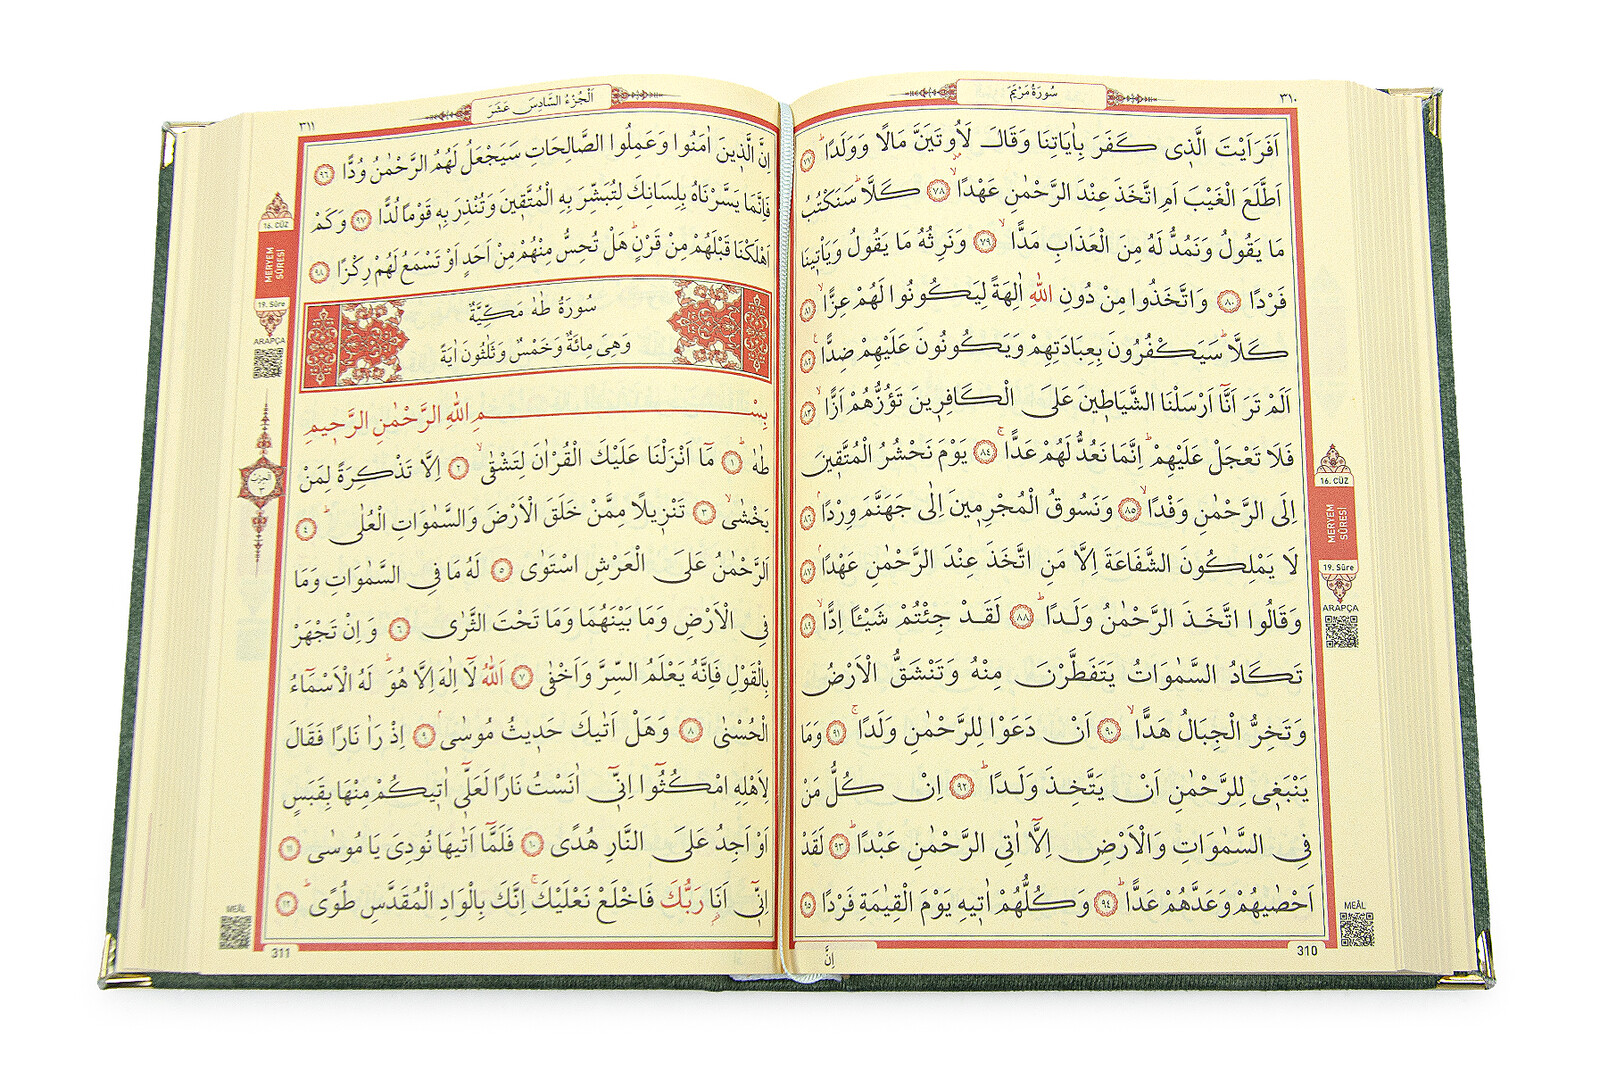 ٣١٠
سُورَةُ مَرْيَمَ
اَفَرَاَيْتَ الَّذٖى كَفَرَ بِاٰيَاتِنَا وَقَالَ لَاُوتَيَنَّ مَالًا وَوَلَدًاؕ ٧٧
اَطَّلَعَ الْغَيْبَ اَمِ اتَّخَذَ عِنْدَ الرَّحْمٰنِ عَهْدًاۙ ٧٨ كَلَّاؕ سَنَكْتُبُ
مَا يَقُولُ وَنَمُدُّ لَهُ مِنَ الْعَذَابِ مَدًّاۙ ٧٩ وَنَرِثُهُ مَا يَقُولُ وَيَاْتٖينَا
فَرْدًا ٨٠ وَاتَّخَذُوا مِنْ دُونِ اللّٰهِ اٰلِهَةً لِيَكُونُوا لَهُمْ عِزًّاۙ ٨١
كَلَّاؕ سَيَكْفُرُونَ بِعِبَادَتِهِمْ وَيَكُونُونَ عَلَيْهِمْ ضِدًّا۟ ٨٢
اَلَمْ تَرَ اَنَّٓا اَرْسَلْنَا الشَّيَاطٖينَ عَلَى الْكَافِرٖينَ تَؤُزُّهُمْ اَزًّاۙ ٨٣
فَلَا تَعْجَلْ عَلَيْهِمْؕ اِنَّمَا نَعُدُّ لَهُمْ عَدًّاۚ ٨٤ يَوْمَ نَحْشُرُ الْمُتَّقٖينَ
اِلَى الرَّحْمٰنِ وَفْدًاۙ ٨٥ وَنَسُوقُ الْمُجْرِمٖينَ اِلٰى جَهَنَّمَ وِرْدًاۢ ٨٦
لَا يَمْلِكُونَ الشَّفَاعَةَ اِلَّا مَنِ اتَّخَذَ عِنْدَ الرَّحْمٰنِ عَهْدًاۢ ٨٧
وَقَالُوا اتَّخَذَ الرَّحْمٰنُ وَلَدًاؕ ٨٨ لَقَدْ جِئْتُمْ شَيْـًٔا اِدًّاۙ ٨٩
تَكَادُ السَّمٰوَاتُ يَتَفَطَّرْنَ مِنْهُ وَتَنْشَقُّ الْاَرْضُ
وَتَخِرُّ الْجِبَالُ هَدًّاۙ ٩٠ اَنْ دَعَوْا لِلرَّحْمٰنِ وَلَدًاۚ ٩١ وَمَا
يَنْبَغٖى لِلرَّحْمٰنِ اَنْ يَتَّخِذَ وَلَدًاؕ ٩٢ اِنْ كُلُّ مَنْ
فِى السَّمٰوَاتِ وَالْاَرْضِ اِلَّٓا اٰتِى الرَّحْمٰنِ عَبْدًاؕ ٩٣ لَقَدْ
اَحْصٰيهُمْ وَعَدَّهُمْ عَدًّاؕ ٩٤ وَكُلُّهُمْ اٰتٖيهِ يَوْمَ الْقِيٰمَةِ فَرْدًا ٩٥
اِنَّ
310
16. CÜZ
MERYEM
SÛRESİ
19. Sûre
ARAPÇA
MEÂL
اَلْجُزْءُ السَّادِسَ عَشَرَ
٣١١
اِنَّ الَّذٖينَ اٰمَنُوا وَعَمِلُوا الصَّالِحَاتِ سَيَجْعَلُ لَهُمُ الرَّحْمٰنُ وُدًّا ٩٦
فَاِنَّمَا يَسَّرْنَاهُ بِلِسَانِكَ لِتُبَشِّرَ بِهِ الْمُتَّقٖينَ وَتُنْذِرَ بِهٖ قَوْمًا لُدًّا ٩٧ وَكَمْ
اَهْلَكْنَا قَبْلَهُمْ مِنْ قَرْنٍؕ هَلْ تُحِسُّ مِنْهُمْ مِنْ اَحَدٍ اَوْ تَسْمَعُ لَهُمْ رِكْزًا ٩٨
سُورَةُ طٰهٰ مَكِّيَّةٌ
وَهِىَ مِائَةٌ وَخَمْسٌ وَثَلٰثُونَ اٰيَةً
بِسْمِ اللّٰهِ الرَّحْمٰنِ الرَّحٖيمِ
طٰهٰؕ ١ مَٓا اَنْزَلْنَا عَلَيْكَ الْقُرْاٰنَ لِتَشْقٰىۙ ٢ اِلَّا تَذْكِرَةً لِمَنْ
يَخْشٰىۙ ٣ تَنْزٖيلًا مِمَّنْ خَلَقَ الْاَرْضَ وَالسَّمٰوَاتِ الْعُلٰىؕ ٤
اَلرَّحْمٰنُ عَلَى الْعَرْشِ اسْتَوٰى ٥ لَهُ مَا فِى السَّمٰوَاتِ وَمَا
فِى الْاَرْضِ وَمَا بَيْنَهُمَا وَمَا تَحْتَ الثَّرٰى ٦ وَاِنْ تَجْهَرْ
بِالْقَوْلِ فَاِنَّهُ يَعْلَمُ السِّرَّ وَاَخْفٰى ٧ اَللّٰهُ لَٓا اِلٰهَ اِلَّا هُوَؕ لَهُ الْاَسْمَٓاءُ
الْحُسْنٰى ٨ وَهَلْ اَتٰيكَ حَدٖيثُ مُوسٰىۢ ٩ اِذْ رَاٰ نَارًا فَقَالَ
لِاَهْلِهِ امْكُثُٓوا اِنّٖٓى اٰنَسْتُ نَارًا لَعَلّٖٓى اٰتٖيكُمْ مِنْهَا بِقَبَسٍ
اَوْ اَجِدُ عَلَى النَّارِ هُدًى ١٠ فَلَمَّٓا اَتٰيهَا نُودِىَ يَا مُوسٰى ١١
اِنّٖٓى اَنَا رَبُّكَ فَاخْلَعْ نَعْلَيْكَۚ اِنَّكَ بِالْوَادِ الْمُقَدَّسِ طُوًىؕ ١٢
311
16. CÜZ
MERYEM
SÛRESİ
19. Sûre
ARAPÇA
اَلْحِزْبُ
٣
MEÂL